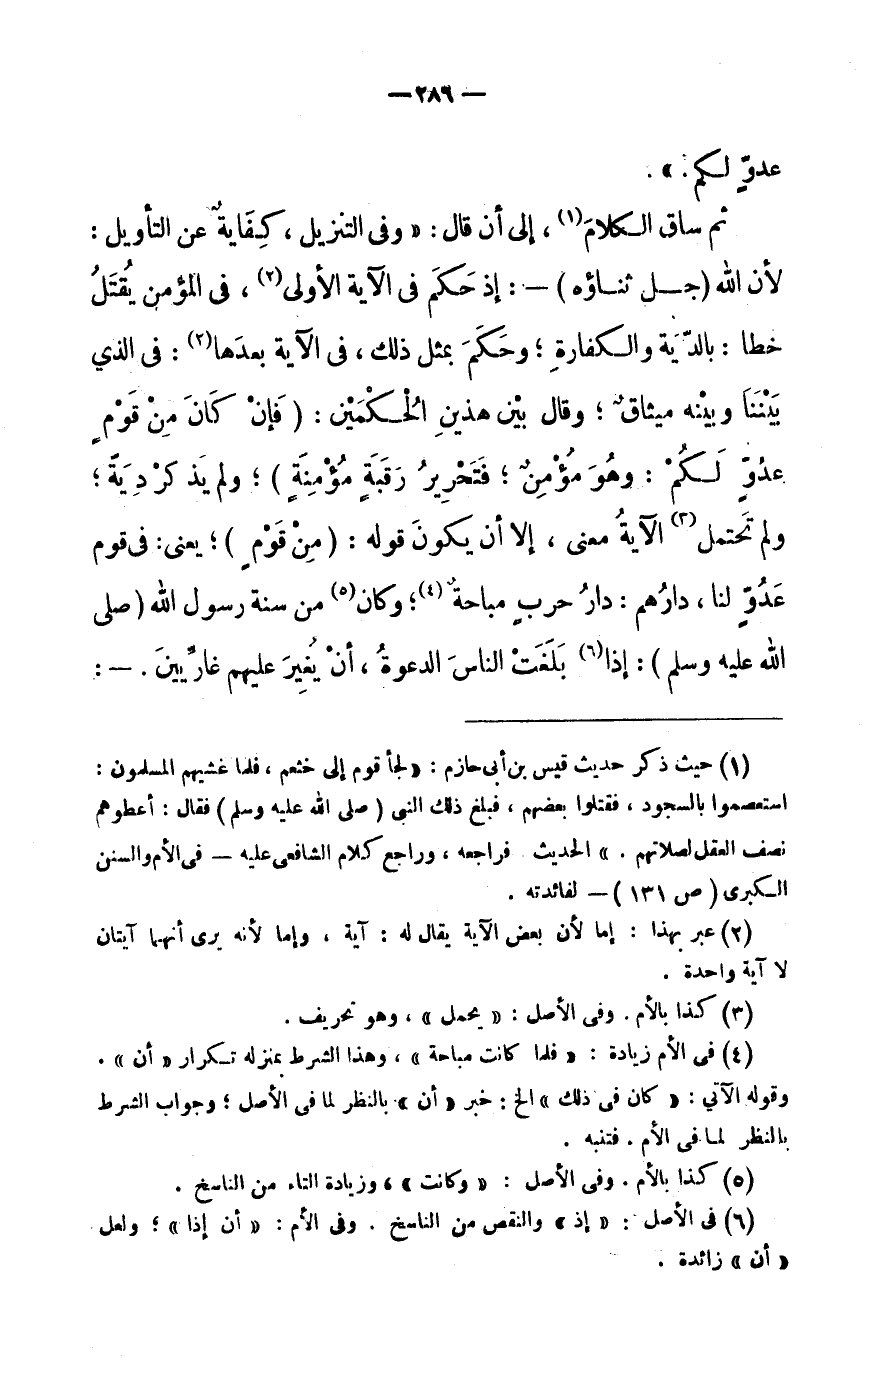 — ٢٨٦ —
عدوٍّ لـكم. » .
ثم ساق الـكلامَ(١) ، إلى أن قال : « وفى التنزيل ، كِفَايةٌ عن التأويل :
لأن الله (جـل ثنـاؤه ) — : إذ حَكَمَ فى الآية الأولى(٢) ، فى المؤمن يُقتَلُ
خطا : بالدِّيَة والـكفارةِ ؛ وحَكَمَ بمثل ذلك ، فى الآية بعدَها(٢) : فى الذي
بَيْنَنَا وبيْنه ميثاقٌ ؛ وقال بيْن هذينِ الْحُـكْمَيْن : ( فَإِنْ كَانَ مِنْ قَوْمٍ
عدُوٍّ لَـكُمْ : وهُوَ مُؤْمِنٌ ؛ فَتَحْرِيرُ رَقَبَةٍ مُؤْمِنَةٍ ) ؛ ولم يَذ كرْ دِيَةً ؛
ولم تَحتمل(٣) الآيةُ معنى ، إلا أن يكونَ قوله : ( مِنْ قَوْمٍ ) ؛ يعنى : فى قوم
عَدُوٍّ لنا ، دارُهم : دارُ حربٍ مباحةٌ(٤) ؛ وكان(٥) من سنة رسول الله (صلى
الله عليه وسلم ) : إذا(٦) بَلَغَتْ الناسَ الدعوةُ ، أنْ يُغِيرَ عليهم غارِّيينَ . — :
(١) حيث ذكر حديث قيس بن أبى حازم : « لجأ قوم إلى خثعم ، فلما غشيهم المسلمون :
استعصموا بالسجود ، فقتلوا بعضهم ، فبلغ ذلك النبى ( صلى الله عليه وسلم ) فقال : أعطوهم
نصف العقل لصلاتهم . » الحديث فراجعه ، وراجع كلام الشافعى عليه — فى الأم والسنن
الـكبرى ( ص ١٣١ ) — لفائدته .
(٢) عبر بهذا : إما لأن بعض الآية يقال له : آية ، وإما لأنه يرى أنهما آيتان
لا آية واحدة .
(٣) كذا بالأم . وفى الأصل : « يحمل » ، وهو تحريف .
(٤) فى الأم زيادة : « فلما كانت مباحة » ، وهذا الشرط بمنزله تـكرار « أن » .
وقوله الآتي : « كان فى ذلك » الخ : خبر « أن » بالنظر لما فى الأصل ؛ وجواب الشرط
بالنظر لما فى الأم . فتنبه .
(٥) كذا بالأم . وفى الأصل : « وكانت » ، وزيادة التاء من الناسخ .
(٦) فى الأصل : « إذ » والنقص من الناسخ . وفى الأم : « أن إذا » ؛ ولعل
« أن » زائدة .